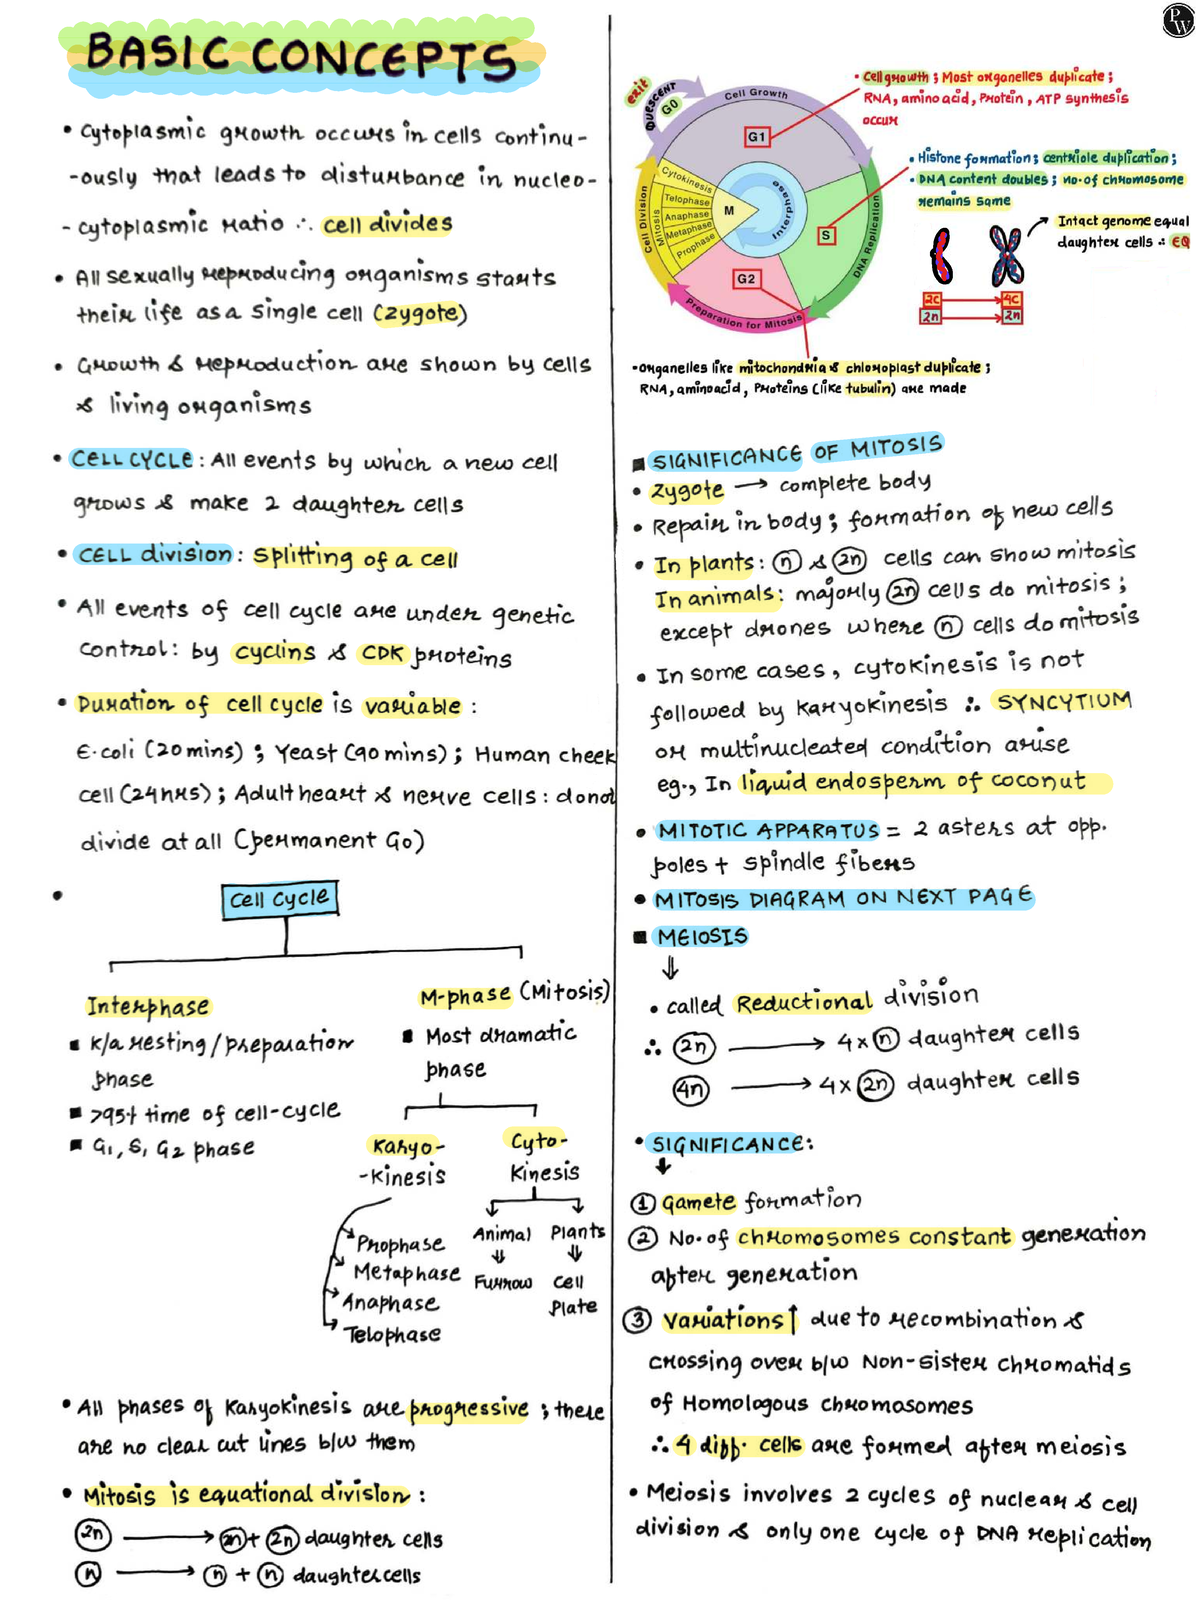 BASIC CONCEPTS
• Cytoplasmic growth occurs in cells continu-
-ously that leads to disturbance in nucleo-
- cytoplasmic ratio ∴ cell divides
• All sexually reproducing organisms starts
their life as a single cell (zygote)
• Growth & reproduction are shown by cells
& living organisms
• CELL CYCLE : All events by which a new cell
grows & make 2 daughter cells
• CELL division : splitting of a cell
• All events of cell cycle are under genetic
control : by cyclins & CDK proteins
• Duration of cell cycle is variable :
E.coli (20 mins) ; Yeast (90 mins) ; Human cheek
cell (24 hrs) ; Adult heart & nerve cells : donot
divide at all (permanent G0)
• Cell Cycle
Interphase
▪ K/a resting / preparation
phase
▪ >95% time of cell-cycle
▪ G1, S, G2 phase
M-phase (Mitosis)
▪ Most dramatic
phase
Karyo-
-Kinesis
Cyto-
Kinesis
Prophase
Metaphase
Anaphase
Telophase
Animal
Furrow
Plants
Cell
Plate
• All phases of Karyokinesis are progressive ; there
are no clear cut lines b/w them
• Mitosis is equational division :
2n → 2n + 2n daughter cells
n → n + n daughter cells
PW
exit
QUIESCENT
G0
Cell Growth
G1
Cytokinesis
Telophase
Anaphase
Metaphase
Prophase
Mitosis
Cell Division
M
Interphase
S
DNA Replication
G2
Preparation for Mitosis
• Cell growth ; Most organelles duplicate ;
RNA, amino acid, Protein, ATP synthesis
occur
• Histone formation ; centriole duplication ;
• DNA content doubles ; no. of chromosome
remains same
Intact genome equal
daughter cells ∴ EQ
2C → 4C
2n → 2n
• Organelles like mitochondria & chloroplast duplicate ;
RNA, aminoacid, Proteins (like tubulin) are made
■ SIGNIFICANCE OF MITOSIS
• Zygote → complete body
• Repair in body ; formation of new cells
• In plants : n & 2n cells can show mitosis
In animals : majorly 2n cells do mitosis ;
except drones where n cells do mitosis
• In some cases, cytokinesis is not
followed by Karyokinesis ∴ SYNCYTIUM
or multinucleated condition arise
eg., In liquid endosperm of coconut
• MITOTIC APPARATUS = 2 asters at opp.
poles + spindle fibers
• MITOSIS DIAGRAM ON NEXT PAGE
■ MEIOSIS
⇓
• called Reductional division
∴ 2n → 4 x n daughter cells
4n → 4 x 2n daughter cells
• SIGNIFICANCE :
① Gamete formation
② No. of chromosomes constant generation
after generation
③ Variations ↑ due to recombination &
crossing over b/w Non-sister chromatids
of Homologous chromosomes
∴ 4 diff. cells are formed after meiosis
• Meiosis involves 2 cycles of nuclear & cell
division & only one cycle of DNA replication